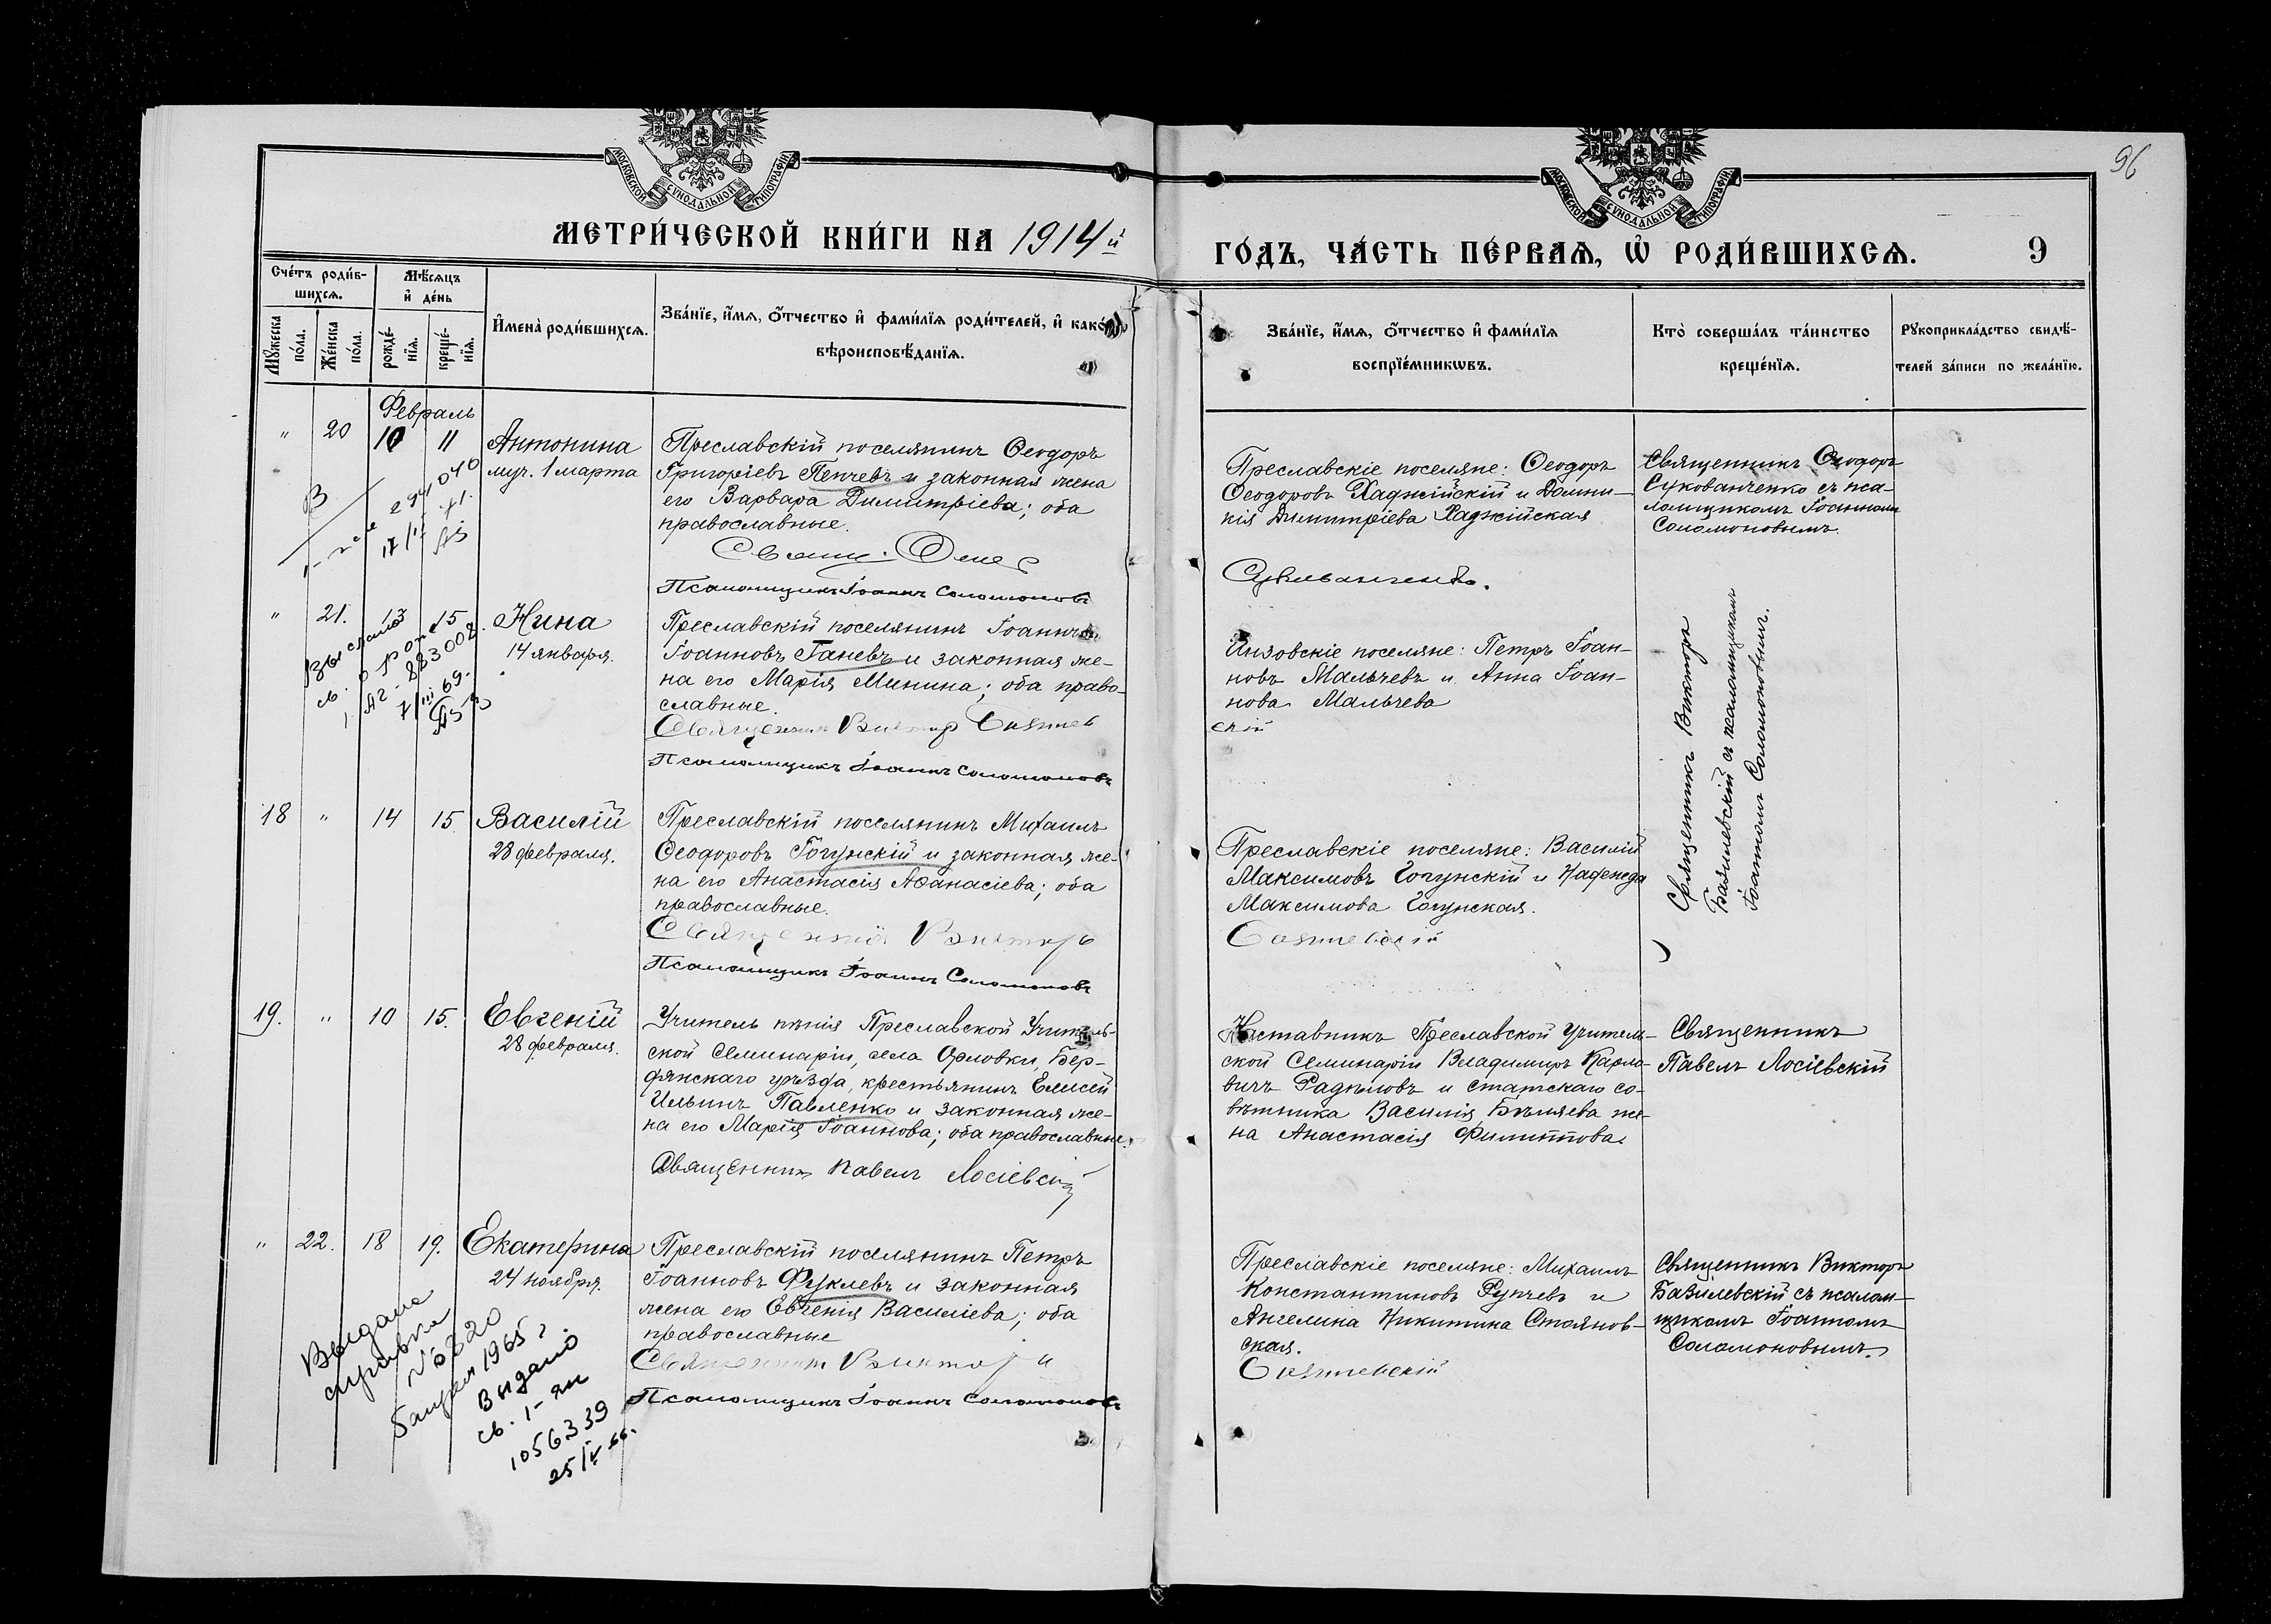 96
МОСКОВСКОЙ СУНОДАЛЬНОЙ ТИПОГРАФІИ
МОСКОВСКОЙ СУНОДАЛЬНОЙ ТИПОГРАФІИ
МЕТРИ́ЧЕСКОЙ КНИ́ГИ НА 1914й
ГО́ДЪ, ЧА́СТЬ ПЕ́РВАѦ, Ѡ҆ РОДИ́ВШИХСѦ. 9
Сче́тъ роди́в-
шихсѧ.
Мѣ́сѧцъ
и҆ де́нь
Мꙋ́жеска
по́ла.
Же́нска
по́ла.
рожде́-
нїѧ.
креще́-
нїѧ.
И҆мена̀ роди́вшихсѧ.
Зва́нїе, и҆́мѧ, ѻ҆́тчество и҆ фами́лїѧ роди́телей, и҆ како́гѡ
вѣроисповѣ́данїѧ.
Зва́нїе, и҆́мѧ, ѻ҆́тчество и҆ фами́лїѧ
воспрїе́мникѡвъ.
Кто̀ соверша́лъ та́инство
креще́нїѧ.
Рꙋкоприкла́дство свидѣ́-
телей за́писи по жела́нїю.
Февраль
" 20 10 11 Антонина
муч. 1 марта
Преславскій поселянинъ Ѳеодоръ
Григоріевъ Пепчевъ и законная жена
его Варвара Димитріева; оба
православные.
Псаломщикъ Іоаннъ Соломоновъ
Преславскіе поселяне: Ѳеодоръ
Ѳеодоровъ Хаджійскій и Домни-
кія Димитріева Хаджійская
Священникъ Ѳеодоръ
Сукованченко съ пса-
ломщикомъ Іоанномъ
Соломоновымъ.
17/
" 21. 13 15. Нина
14 января.
Выслано
св. о рожд.
883008
69.
Преславскій поселянинъ Іоаннъ
Іоанновъ Ганевъ и законная же-
на его Марія Минина; оба право-
славные.
Священникъ Виктор Базилев
Псаломщикъ Іоаннъ Соломоновъ
Инзовскіе поселяне: Петръ Іоан-
новъ Мальчевъ и Анна Іоан-
нова Мальчева
скій
Священникъ Викторъ
Базилевскій съ псаломщикомъ
Іоанномъ Соломоновымъ.
18 " 14 15. Василій
28 февраля.
Преславскій поселянинъ Михаилъ
Ѳеодоровъ Гогунскій и законная же-
на его Анастасія Аѳанасіева; оба
православные.
Священникъ Викторъ
Псаломщикъ Іоаннъ Соломоновъ
Преславскіе поселяне: Василій
Максимовъ Гогунскій и Надежда
Максимова Гогунская.
Базилевскій
19. " 10 15. Евгеній
28 февраля.
Учитель пѣнія Преславской Учитель-
ской Семинаріи, села Орловки, Бер-
дянскаго уѣзда, крестьянинъ Елисей
Ильинъ Павленко и законная же-
на его Марія Іоаннова; оба православные.
Священникъ Павелъ Лосіевскій
Наставникъ Преславской Учитель-
ской Семинаріи Владимиръ Карло-
вичъ Радкловъ и статскаго со-
вѣтника Василія Бѣляева же-
на Анастасія Филиппова
Священникъ
Павелъ Лосіевскій
" 22. 18 19. Екатерина
24 ноября.
Выдана
справка
№ 820
1965 г
Выдано
св. I-
1056339
25/V 66.
Преславскій поселянинъ Петръ
Іоанновъ Фуклевъ и законная
жена его Евгенія Василіева; оба
православные
Священникъ Виктор
Псаломщикъ Іоаннъ Соломоновъ
Преславскіе поселяне: Михаилъ
Константиновъ Рупчевъ и
Ангелина Никитина Стоянов-
ская.
Базилевскій
Священникъ Викторъ
Базилевскій съ псалом-
щикомъ Іоанномъ
Соломоновымъ.